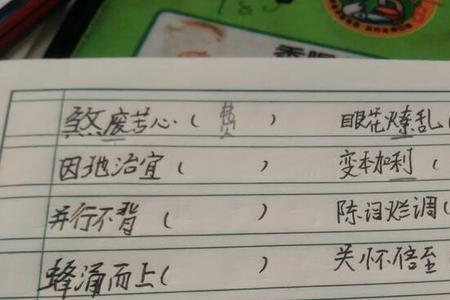 煞废苦心（ 费 ） 眼花燎乱（
因地治宜（ ） 变本加利（
并行不背（ ） 陈词烂调（
蜂涌而上（ ） 关怀倍至（